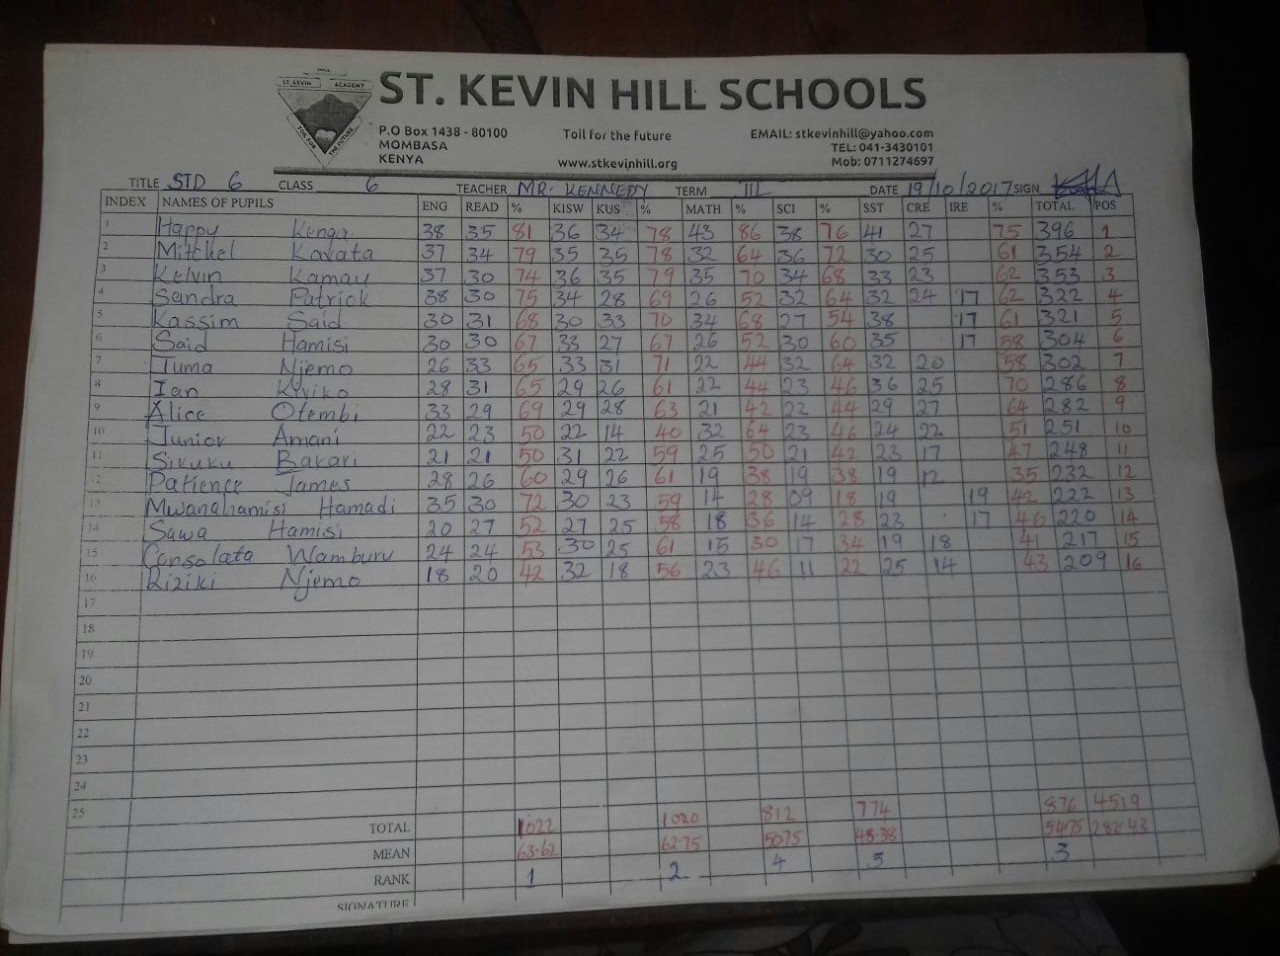 ST. KEVIN ACADEMY
TOIL FOR THE FUTURE
ST. KEVIN HILL SCHOOLS
P.O Box 1438 - 80100 Toil for the future EMAIL: stkevinhill@yahoo.com
MOMBASA TEL: 041-3430101
KENYA www.stkevinhill.org Mob: 0711274697
TITLE STD 6 CLASS 6 TEACHER MR. KENNEDY TERM III DATE 19/10/2017 SIGN
INDEX NAMES OF PUPILS ENG READ % KISW KUS % MATH % SCI % SST CRE IRE % TOTAL POS
1 Happy Kenga 38 35 81 36 34 78 43 86 38 76 41 27 75 396 1
2 Mitchel Kavata 37 34 79 35 35 78 32 64 36 72 30 25 61 354 2
3 Kelvin Kamau 37 30 74 36 35 79 35 70 34 68 33 23 62 353 3
4 Sandra Patrick 38 30 75 34 28 69 26 52 32 64 32 24 17 62 322 4
5 Kassim Said 30 31 68 30 33 70 34 68 27 54 38 17 61 321 5
6 Said Hamisi 30 30 67 33 27 67 26 52 30 60 35 17 58 304 6
7 Juma Njemo 26 33 65 33 31 71 22 44 32 64 32 20 58 302 7
8 Ian 28 31 65 29 26 61 22 44 23 46 36 25 70 286 8
9 Alice Otembi 33 29 69 29 28 63 21 42 22 44 29 27 64 282 9
10 Junior Amani 22 23 50 22 14 40 32 64 23 46 24 22 51 251 10
11 Sikuku Bakari 21 21 50 31 22 59 25 50 21 42 23 17 47 248 11
12 Patience James 28 26 60 29 26 61 19 38 19 38 19 12 35 232 12
13 Mwanahamisi Hamadi 35 30 72 30 23 59 14 28 09 18 19 19 42 222 13
14 Sawa Hamisi 20 27 52 27 25 58 18 36 14 28 23 17 46 220 14
15 Consolata Wamburu 24 24 53 30 25 61 15 30 17 34 19 18 41 217 15
16 Riziki Njemo 18 20 42 32 18 56 23 46 11 22 25 14 43 209 16
17
18
19
20
21
22
23
24
25
TOTAL 1022 1020 812 774 876 4519
MEAN 63.62 62.75 50.75 48.38 54.75 282.42
RANK 1 2 4 5 3
SIGNATURE